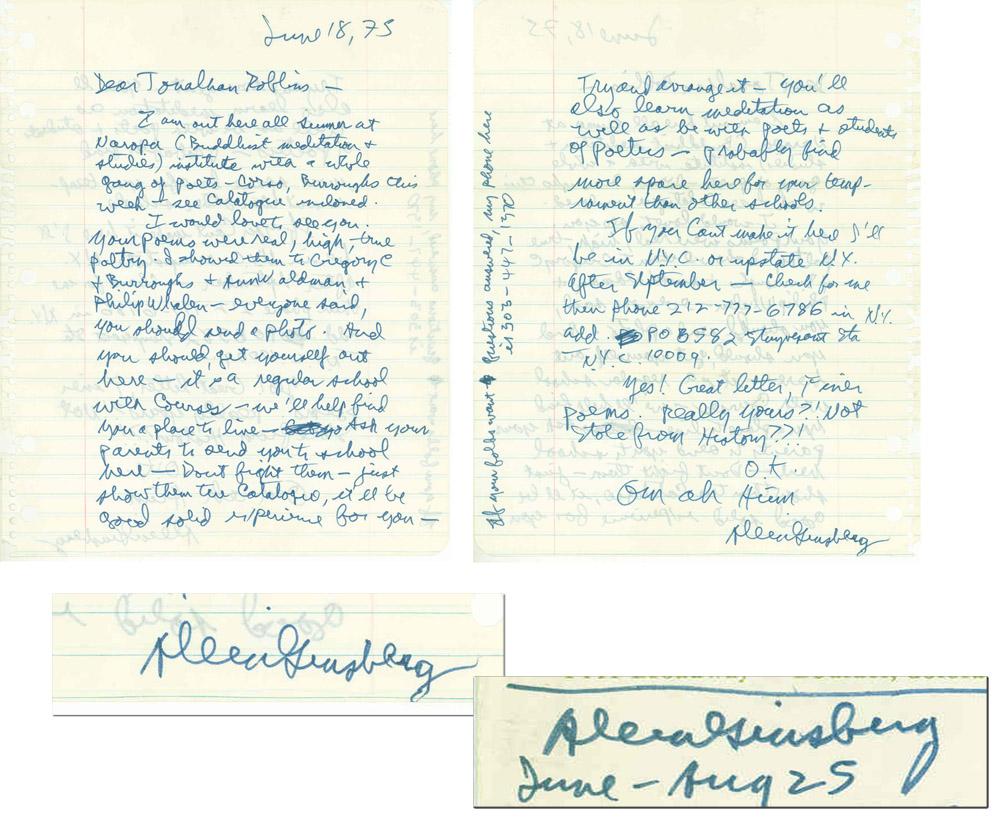 June 18, 75
Dear Jonathan Robbins —
I am out here all summer at
Naropa (Buddhist meditation &
studies) institute with a whole
gang of poets - Corso, Burroughs this
week — see Catalogue inclosed.
I would love to see you.
your poems were real, high, true
poetry. I showed them to Gregory C
& Burroughs & Ann Waldman &
Philip Whalen — everyone said,
you should send a photo. And
you should get yourself out
here — it's a regular school
with Courses — we'll help find
you a place to live — Ask your
parents to send you to school
here — Dont fight them — just
show them the Catalogue, it'll be
good solid experience for you —
Try and arrange it — you'll
also learn meditation as
well as be with poets & students
of Poetics — probably find
more space here for your temp-
rement than other schools.
If you Cant make it here I'll
be in N.Y.C. or upstate N.Y.
after September — Check for me
then phone 212-777-6786 in N.Y.
add. PO B582 Stuyvesant Sta
N.Y.C. 10009.
Yes! Great letter, Finer
poems. Really yours?! Not
stole from History??!
O.K.
Om ah Hum
Allen Ginsberg
If your folks want questions answered, my phone here
is 303-447-1970
Allen Ginsberg
Allen Ginsberg
June - Aug 25